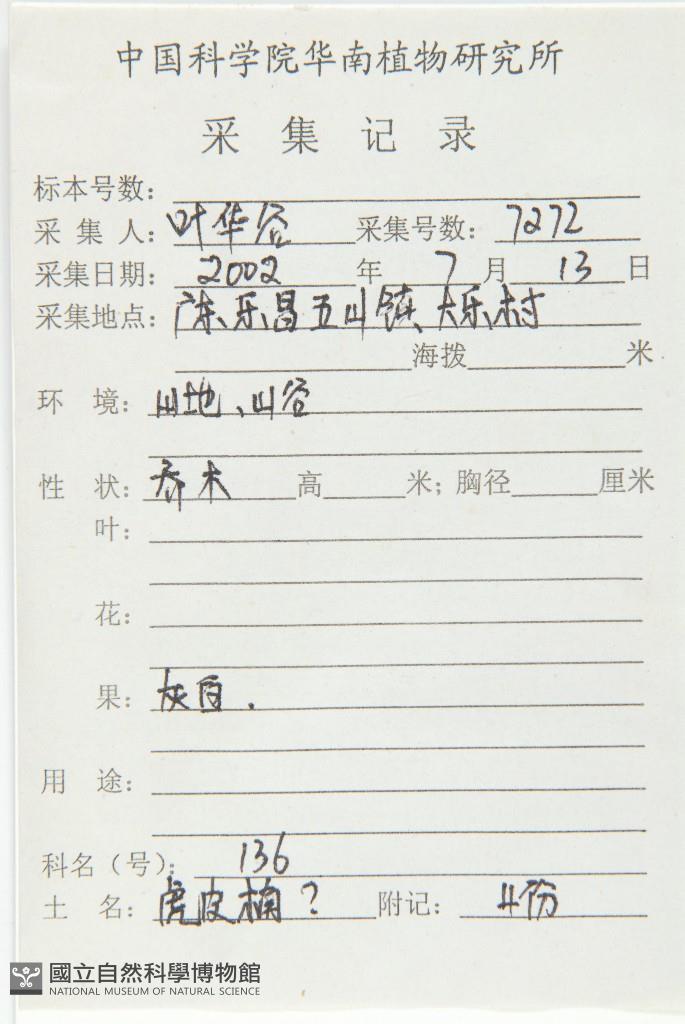 中国科学院华南植物研究所
采集记录
标本号数：
采集人：叶华谷 采集号数：7272
采集日期：2002年7月13日
采集地点：广东乐昌五山镇大乐村
海拨 米
环境：山地、山谷
性状：乔木 高 米；胸径 厘米
叶：
花：
果：灰白.
用途：
科名（号）：136
土名：虎皮楠？ 附记：4份
國立自然科學博物館
NATIONAL MUSEUM OF NATURAL SCIENCE